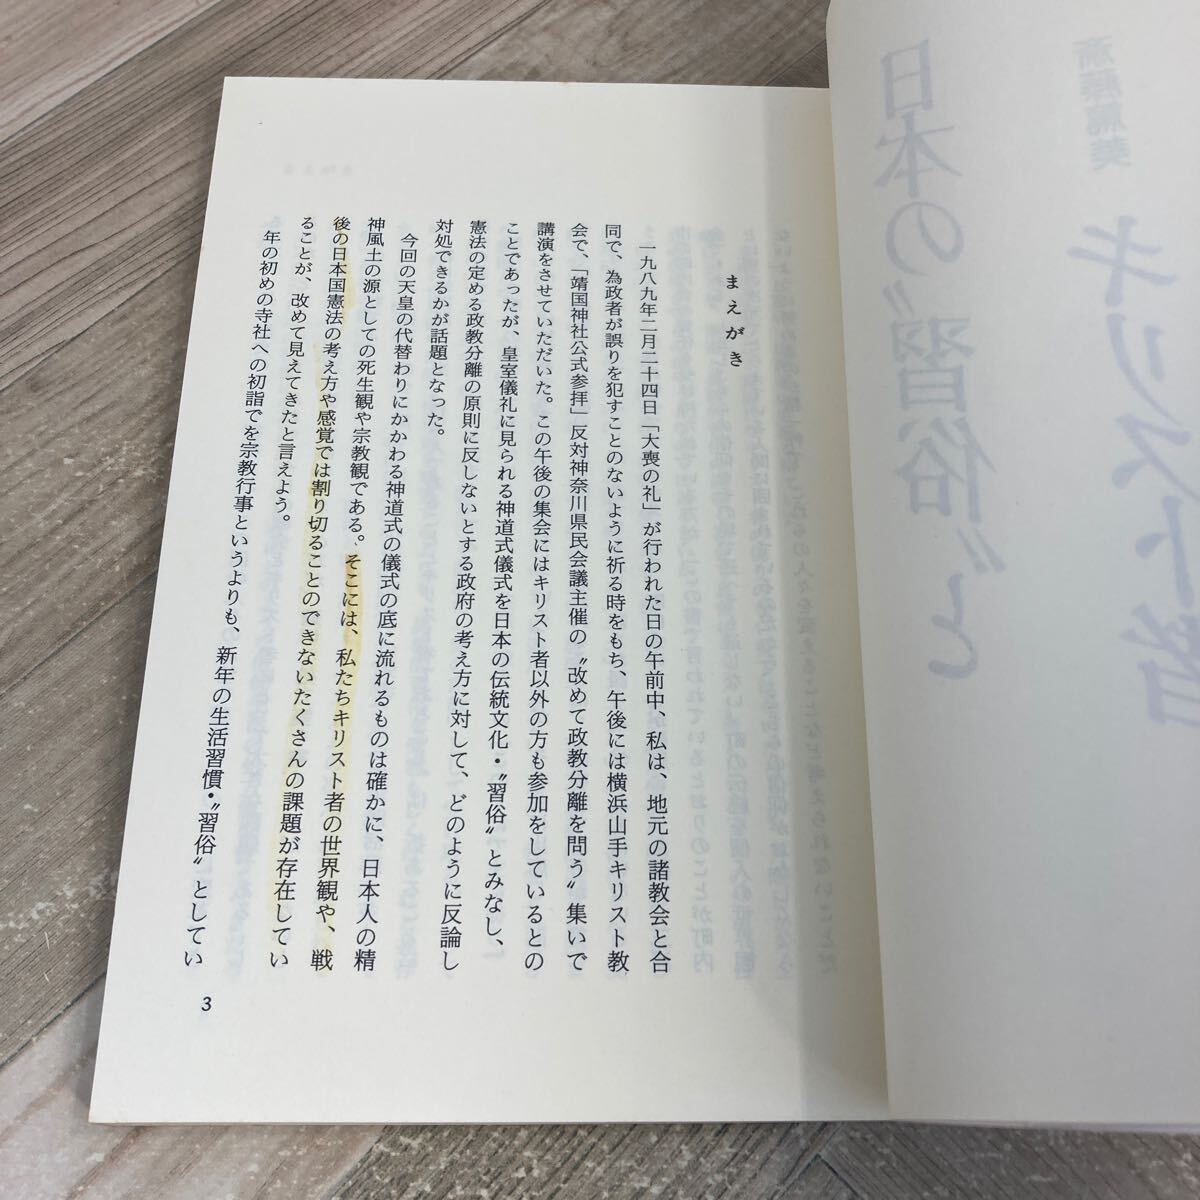 斎藤篤美
キリスト者
日本の〝習俗〟と
まえがき
一九八九年二月二十四日「大喪の礼」が行われた日の午前中、私は、地元の諸教会と合
同で、為政者が誤りを犯すことのないように祈る時をもち、午後には横浜山手キリスト教
会で、「靖国神社公式参拝」反対神奈川県民会議主催の〝改めて政教分離を問う〟集いで
講演をさせていただいた。この午後の集会にはキリスト者以外の方も参加をしているとの
ことであったが、皇室儀礼に見られる神道式儀式を日本の伝統文化・〝習俗〟とみなし、
憲法の定める政教分離の原則に反しないとする政府の考え方に対して、どのように反論し
対処できるかが話題となった。
今回の天皇の代替わりにかかわる神道式の儀式の底に流れるものは確かに、日本人の精
神風土の源としての死生観や宗教観である。そこには、私たちキリスト者の世界観や、戦
後の日本国憲法の考え方や感覚では割り切ることのできないたくさんの課題が存在してい
ることが、改めて見えてきたと言えよう。
年の初めの寺社への初詣でを宗教行事というよりも、新年の生活習慣・〝習俗〟としてい
3